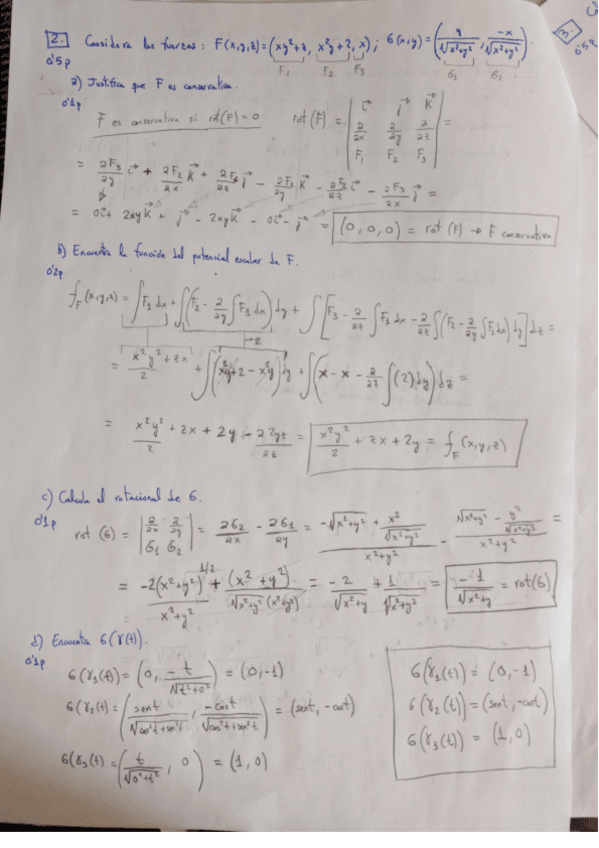 2. Considera las fuerzas: F(x,y,z)=(xy²+z, x²y+2, x); G(x,y)=(y/√(x²+y²), -x/√(x²+y²)).
0'5p F₁ F₂ F₃ G₁ G₂
a) Justifica que F es conservativa.
0'1p
F es conservativa si rot(F)=0 rot(F) = | i⃗ j⃗ k⃗ ; ∂/∂x ∂/∂y ∂/∂z ; F₁ F₂ F₃ | =
= ∂F₃/∂y i⃗ + ∂F₂/∂x k⃗ + ∂F₁/∂z j⃗ - ∂F₁/∂y k⃗ - ∂F₂/∂z i⃗ - ∂F₃/∂x j⃗ =
= 0i⃗ + 2xyk⃗ + j⃗ - 2xyk⃗ - 0i⃗ - j⃗ = (0,0,0) = rot(F) → F conservativa
b) Encuentra la función del potencial escalar de F.
0'2p
f_F(x,y,z) = ∫F₁dx + ∫(F₂ - ∂/∂y ∫F₁dx)dy + ∫[F₃ - ∂/∂z ∫F₁dx - ∂/∂z ∫(F₂ - ∂/∂y ∫F₁dx)dy]dz =
= x²y²/2 + zx + ∫(x²y+2 - x²y)dy + ∫(x - x - ∂/∂z ∫(2)dy)dz =
= x²y²/2 + zx + 2y - ∂2yz/∂z = x²y²/2 + zx + 2y = f_F(x,y,z)
c) Calcula el rotacional de G.
0'1p
rot(G) = | ∂/∂x ∂/∂y ; G₁ G₂ | = ∂G₂/∂x - ∂G₁/∂y = (-√(x²+y²) + x²/√(x²+y²))/(x²+y²) - (√(x²+y²) - y²/√(x²+y²))/(x²+y²) =
= -2(x²+y²)^1/2/(x²+y²) + (x²+y²)/(√(x²+y²)(x²+y²)) = -2/√(x²+y) + 1/√(x²+y²) = -1/√(x²+y) = rot(G)
d) Encuentra G(γ(t)).
0'1p
G(γ₁(t)) = (0, -t/√(t²+0²)) = (0,-1)
G(γ₂(t)) = (sent/√(cos²t+sen²t), -cost/√(cos²t+sen²t)) = (sent, -cost)
G(γ₃(t)) = (t/√(0²+t²), 0) = (1,0)
G(γ₁(t)) = (0,-1)
G(γ₂(t)) = (sent, -cost)
G(γ₃(t)) = (1,0)
3.
0'5p